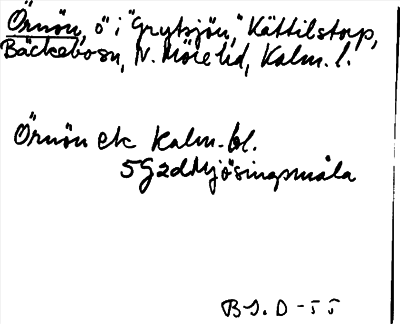 Örnön, ö i "Grytsjön," Kättilstorp,
Bäckebosn, N. Möre hd, Kalm. l.
Örnön ek Kalm-bl.
5G2d Mjösingsmåla
B S. D -55